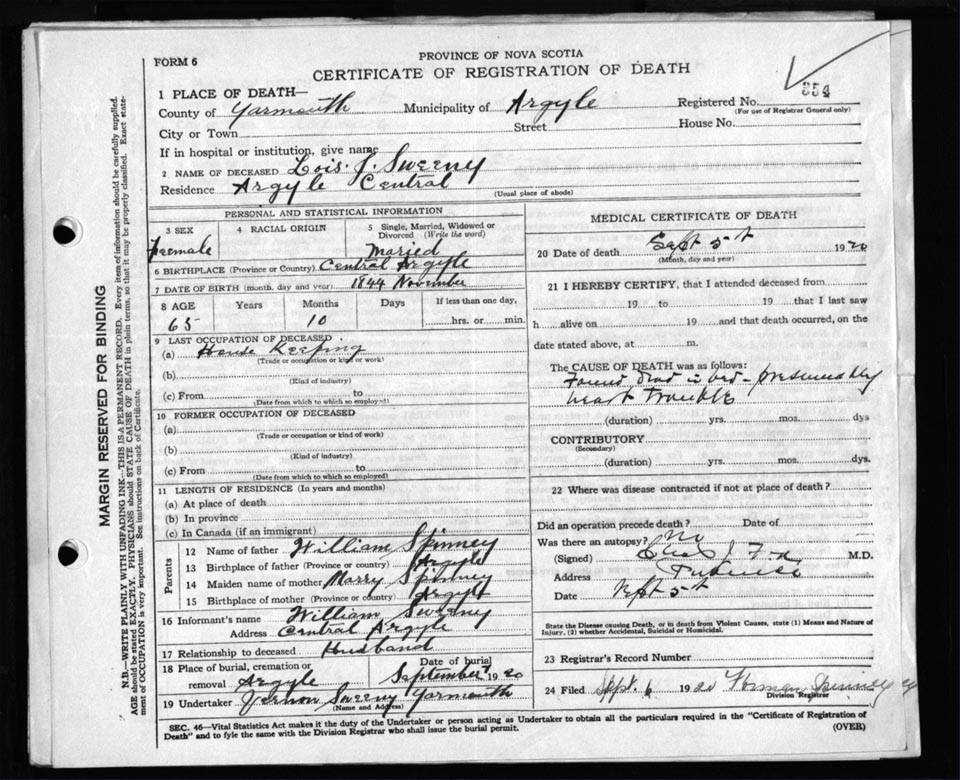 FORM 6
PROVINCE OF NOVA SCOTIA
CERTIFICATE OF REGISTRATION OF DEATH
354
1 PLACE OF DEATH—
County of Yarmouth Municipality of Argyle Registered No.
(For use of Registrar General only)
City or Town Street House No.
If in hospital or institution, give name
2 NAME OF DECEASED Lois. J. Sweeny
Residence Argyle Central
(Usual place of abode)
PERSONAL AND STATISTICAL INFORMATION
3 SEX 4 RACIAL ORIGIN 5 Single, Married, Widowed or Divorced (Write the word)
Feemale Maried
6 BIRTHPLACE (Province or Country) Central Argyle
7 DATE OF BIRTH (month, day and year) 1844 November
8 AGE Years Months Days If less than one day,
65 10 hrs. or min.
9 LAST OCCUPATION OF DECEASED
(a) House Keeping
(Trade or occupation or kind of work)
(b)
(Kind of industry)
(c) From to
(Date from which to which so employed)
10 FORMER OCCUPATION OF DECEASED
(a)
(Trade or occupation or kind of work)
(b)
(Kind of industry)
(c) From to
(Date from which to which so employed)
11 LENGTH OF RESIDENCE (In years and months)
(a) At place of death
(b) In province
(c) In Canada (if an immigrant)
Parents
12 Name of father William Spinney
13 Birthplace of father (Province or country) Argyle
14 Maiden name of mother Marry Spinney
15 Birthplace of mother (Province or country) Argyle
16 Informant's name William Sweeny
Address Central Argyle
17 Relationship to deceased Husband
18 Place of burial, cremation or removal Argyle Date of burial September 1920
19 Undertaker Vernon Sweeny Yarmouth
(Name and Address)
MEDICAL CERTIFICATE OF DEATH
20 Date of death Sept 5t 1920
(Month, day and year)
21 I HEREBY CERTIFY, that I attended deceased from
19 to 19 that I last saw
h alive on 19 and that death occurred, on the
date stated above, at m.
The CAUSE OF DEATH was as follows:
Found dead in bed - presumably
heart trouble
(duration) yrs. mos. dys
CONTRIBUTORY
(Secondary)
(duration) yrs. mos. dys.
22 Where was disease contracted if not at place of death?
Did an operation precede death? Date of
Was there an autopsy? No
(Signed) M.D.
Address
Date Sept 5t
State the Disease causing Death, or in death from Violent Causes, state (1) Means and Nature of
Injury, (2) whether Accidental, Suicidal or Homicidal.
23 Registrar's Record Number
24 Filed Sept. 6 1920 Spinney
Division Registrar
SEC. 46—Vital Statistics Act makes it the duty of the Undertaker or person acting as Undertaker to obtain all the particulars required in the "Certificate of Registration of
Death" and to fyle the same with the Division Registrar who shall issue the burial permit. (OVER)
MARGIN RESERVED FOR BINDING
N.B.—WRITE PLAINLY WITH UNFADING INK—THIS IS A PERMANENT RECORD. Every item of information should be carefully supplied.
AGE should be stated EXACTLY. PHYSICIANS should STATE CAUSE OF DEATH in plain terms, so that it may be properly classified. Exact state-
ment of OCCUPATION is very important. See instructions on back of Certificate.